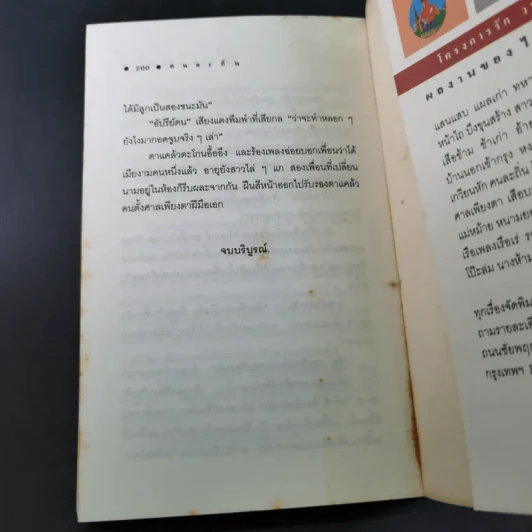 ● ๒๐๐ ● ค น ล ะ ค ื น
ได้มีลูกเป็นสองชนะมัน"
"อัปรีย์คน" เสียงแตงพิมพำที่เสียกล "ว่าจะทำหลอก ๆ
ยังไงมากอดจูบจริง ๆ เล่า"
ตาแคล้วตะโกนอื้ออึง และร้องเพลงฉ่อยบอกเพื่อนว่าได้
เมียงามคนหนึ่งแล้ว อายุยังสาวไล่ ๆ แก สองเพื่อนที่เปลี่ยน
นามอยู่ในห้องก็รีบผละจากกัน ฝืนสีหน้าออกไปรับรองตาแคล้ว
คนตั้งศาลเพียงตาฝีมือเอก
จบบริบูรณ์
โครงการรัก ว
ผลงานของ ๆ
แสนแสบ แผลเก่า ทห
หน้าไถ บึงขุนสร้าง สา
เสือข้าม ข้าเก่า
บ้านนอกเข้ากรุง หง
เกวียนหัก คนละถิ่น
ศาลเพียงตา เสือบ
แม่หม้าย หนามย
เรือเพลงเรือเร่
โป๊ะล่ม นางห้าม
ทุกเรื่องจัดพิม
ถามรายละเอี
ถนนชัยพฤก
กรุงเทพฯ 1